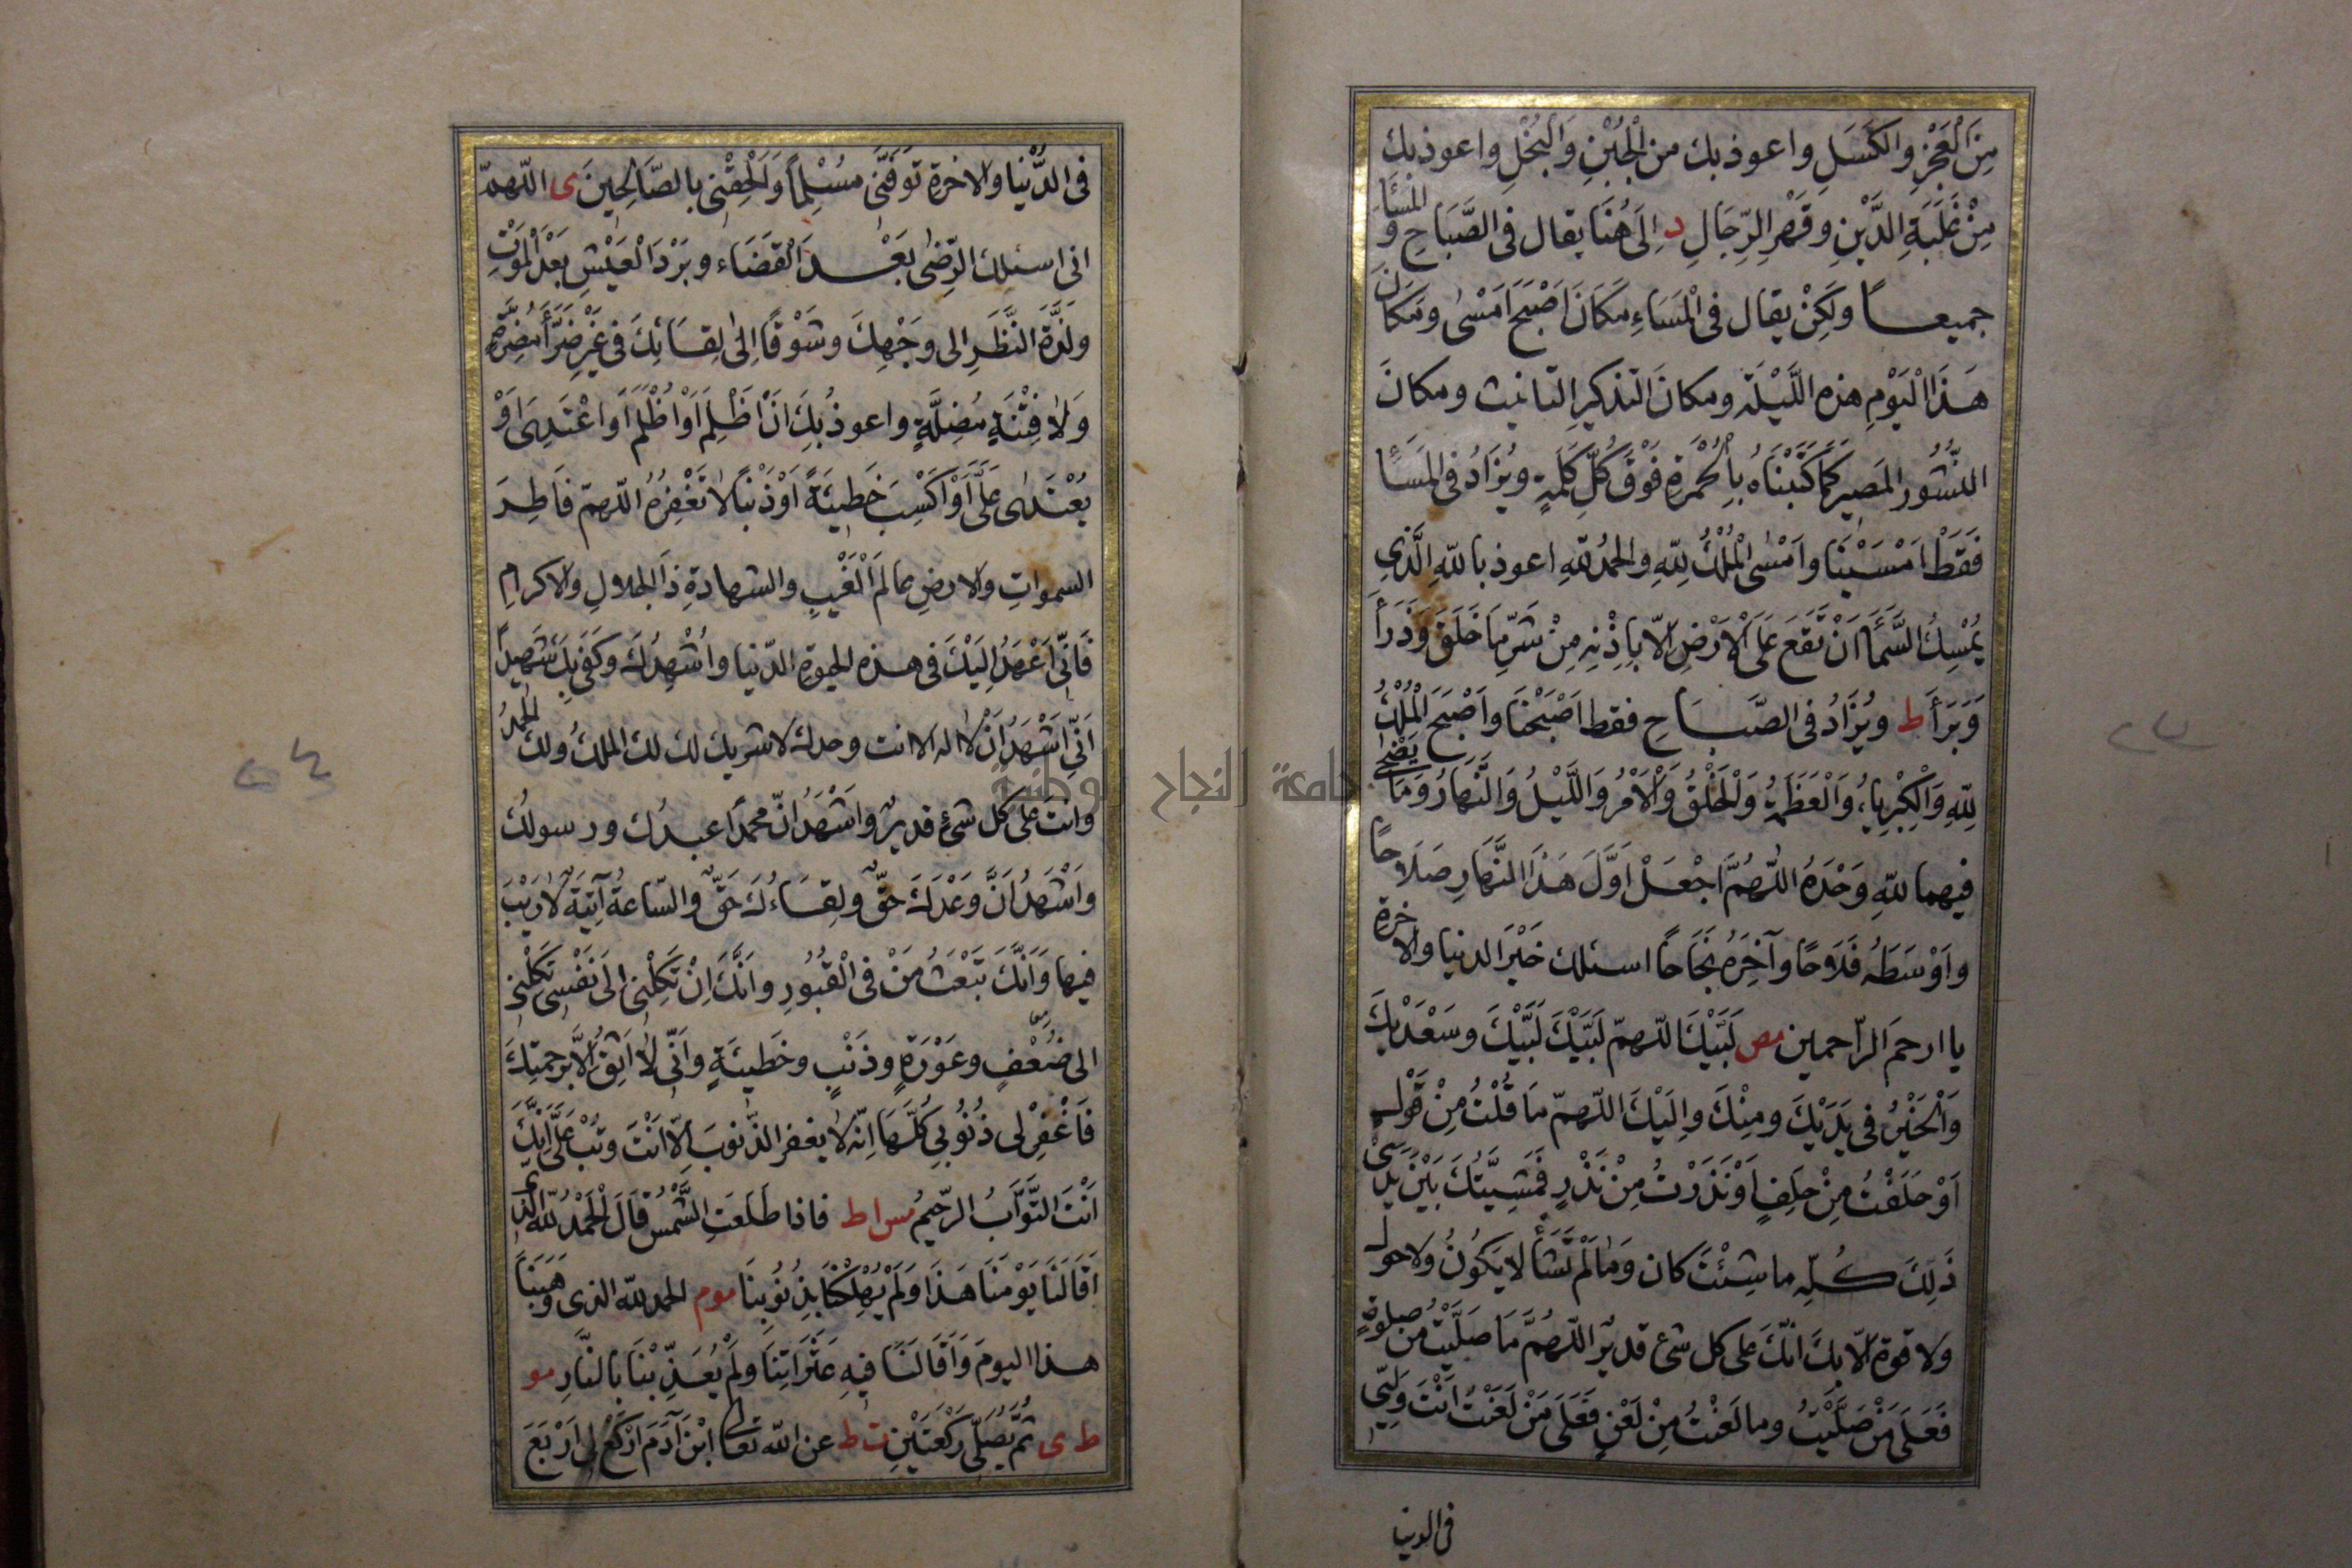 مِنَ الْعَجْزِ وَالْكَسَلِ واعوذ بك من الْجُبْنِ وَالْبُخْلِ واعوذ بك
مِنْ غَلَبَةِ الدَّيْنِ وَقَهْرِ الرِّجَالِ د اِلَى هُنَا يقال فى الصَّبَاحِ وَ الْمَسَاءِ
جميعاً ولَكِنْ يقال فى الْمَسَاءِ مَكَانَ اَصْبَحَ اَمْسٰى ومَكَانَ
هَذَا الْيَوْمِ هذه اللَّيْلَةَ ومكانَ التذكيرِ التانيث ومكانَ
النُّشُورِ المَصِيرَ كَمَا كَتَبْنَاهُ بِالْحُمْرَةِ فَوْقَ كُلِّ كَلِمَةٍ ويُزَادُ فى المَسَاءِ
فَقَطْ اَمْسَيْنَا واَمْسٰى الْمُلْكُ لِلّٰهِ والحمدُ للّٰهِ اعوذ باللّٰهِ الَّذِى
يُمْسِكُ السَّمَاءَ اَنْ تَقَعَ عَلَى الْاَرْضِ اِلّا بِاِذْنِهِ مِنْ شَرِّ مَا خَلَقَ وَذَرَأَ
وَبَرَأَ ط ويُزَادُ فى الصَّبَاحِ فقط اَصْبَحْنَا واَصْبَحَ الْمُلْكُ
لِلّٰهِ وَالْكِبْرِيَاءُ وَالْعَظَمَةُ وَالْخَلْقُ وَالْاَمْرُ وَاللَّيْلُ وَالنَّهَارُ وَمَا يَضْحٰى
فيهما للّٰهِ وَحْدَهُ اللّٰهُمَّ اجْعَلْ اَوَّلَ هَذَا النَّهَارِ صَلَاحًا
واَوْسَطَهُ فَلَاحًا وآخِرَهُ نَجَاحًا اسئلك خَيْرَ الدنيا والاخرة
يا ارحمَ الرّاحمين مص لَبَّيْكَ اللّهمّ لَبَّيْكَ لَبَّيْكَ وسَعْدَيْكَ
وَالْخَيْرُ فى يَدَيْكَ ومِنْكَ واِلَيْكَ اللّهمّ مَا قُلْتُ مِنْ قَوْلٍ
اَوْ حَلَفْتُ مِنْ حِلَفٍ اَوْ نَذَرْتُ مِنْ نَذْرٍ فَمَشِيَّتُكَ بَيْنَ يَدَىْ
ذَلِكَ كُلِّهِ ما شِئْتَ كان وَمَا لَمْ تَشَأْ لا يَكُونُ ولا حول
ولا قوة الّا بك انّكَ على كل شئ قديرٌ اللّٰهُمَّ مَا صَلَّيْتُ من صلوةٍ
فَعَلَى مَنْ صَلَّيْتَ وما لَعَنْتُ مِنْ لَعْنٍ فَعَلَى مَنْ لَعَنْتَ اَنْتَ وَلِيِّى
فى الدنيا
فى الدُّنْيَا والاخرة تَوَفَّنِى مُسْلِماً وَاَلْحِقْنِى بالصَّالِحِينَ ى اللّهمّ
انى اسئلك الرِّضٰى بَعْدَ الْقَضَاء وبَرْدَ الْعَيْشِ بَعْدَ الْمَوْتِ
ولَذَّةَ النَّظَرِ الى وَجْهِكَ وشَوْقًا اِلٰى لِقَائِكَ فى غَيْرِ ضَرَّاءَ مُضِرَّةٍ
وَلَا فِتْنَةٍ مُضِلَّةٍ واعوذ بِكَ اَنْ اَظْلِمَ اَوْ اُظْلَمَ اَوْ اَعْتَدِىَ اَوْ
يُعْتَدٰى عَلَىَّ اَوْ اَكْسِبَ خَطِيئَةً اَوْ ذَنْبًا لا تَغْفِرُهُ اللّهمّ فَاطِرَ
السموات والارضِ عالمَ الْغَيْبِ والشهادةِ ذَا الجلالِ والاكرامِ
فَاِنِّى اَعْهَدُ اِلَيْكَ فى هذه الحيوةِ الدّنيا واُشْهِدُكَ وكَفٰى بِكَ شَهِيدًا
اَنِّى اَشْهَدُ اَنْ لا اله الا انت وحدك لا شريك لك لك الملكُ ولك الحمدُ
وانتَ على كل شئٍ قديرٌ واَشْهَدُ انّ محمدًا عبدُك ورسولُك
واَشْهَدُ اَنَّ وَعْدَكَ حَقٌّ ولِقَاءُكَ حَقٌّ والسّاعةُ آتِيَةٌ لَا رَيْبَ
فيها وَاَنَّكَ تَبْعَثُ مَنْ فى الْقُبُورِ وانَّكَ اِنْ تَكِلْنِى اِلَى نَفْسِى تَكِلْنِى
الى ضُعْفٍ وعَوْرَةٍ وذَنْبٍ وخَطِيئَةٍ وانِّى لَا اَثِقُ اِلَّا بِرحمتِكَ
فَاغْفِرْ لى ذُنُوبِى كُلَّهَا اِنّه لا يغفر الذّنوبَ اِلّا اَنْتَ وتُبْ عَلَىَّ اِنَّكَ
اَنْتَ التَّوَّابُ الرّحيمُ مس ا ط فاذا طَلَعَتِ الشَّمْسُ قَالَ الْحَمْدُ للّٰه الّذى
اَقَالَنَا يَوْمَنَا هَذَا وَلَمْ يُهْلِكْنَا بِذُنُوبِنَا مو م الحمد للّٰه الذى وَهَبَنَا
هذا اليومَ وَاَقَالَنَا فِيهِ عَثَرَاتِنَا ولَمْ يُعَذِّبْنَا بالنَّارِ مو
ط ى ثُمَّ يُصَلِّى رَكْعَتَيْنِ ت ط عن اللّٰه تعالى ابْنَ آدَمَ اَرْكَعْ لى اَرْبَعَ
جامعة النجاح الوطنية